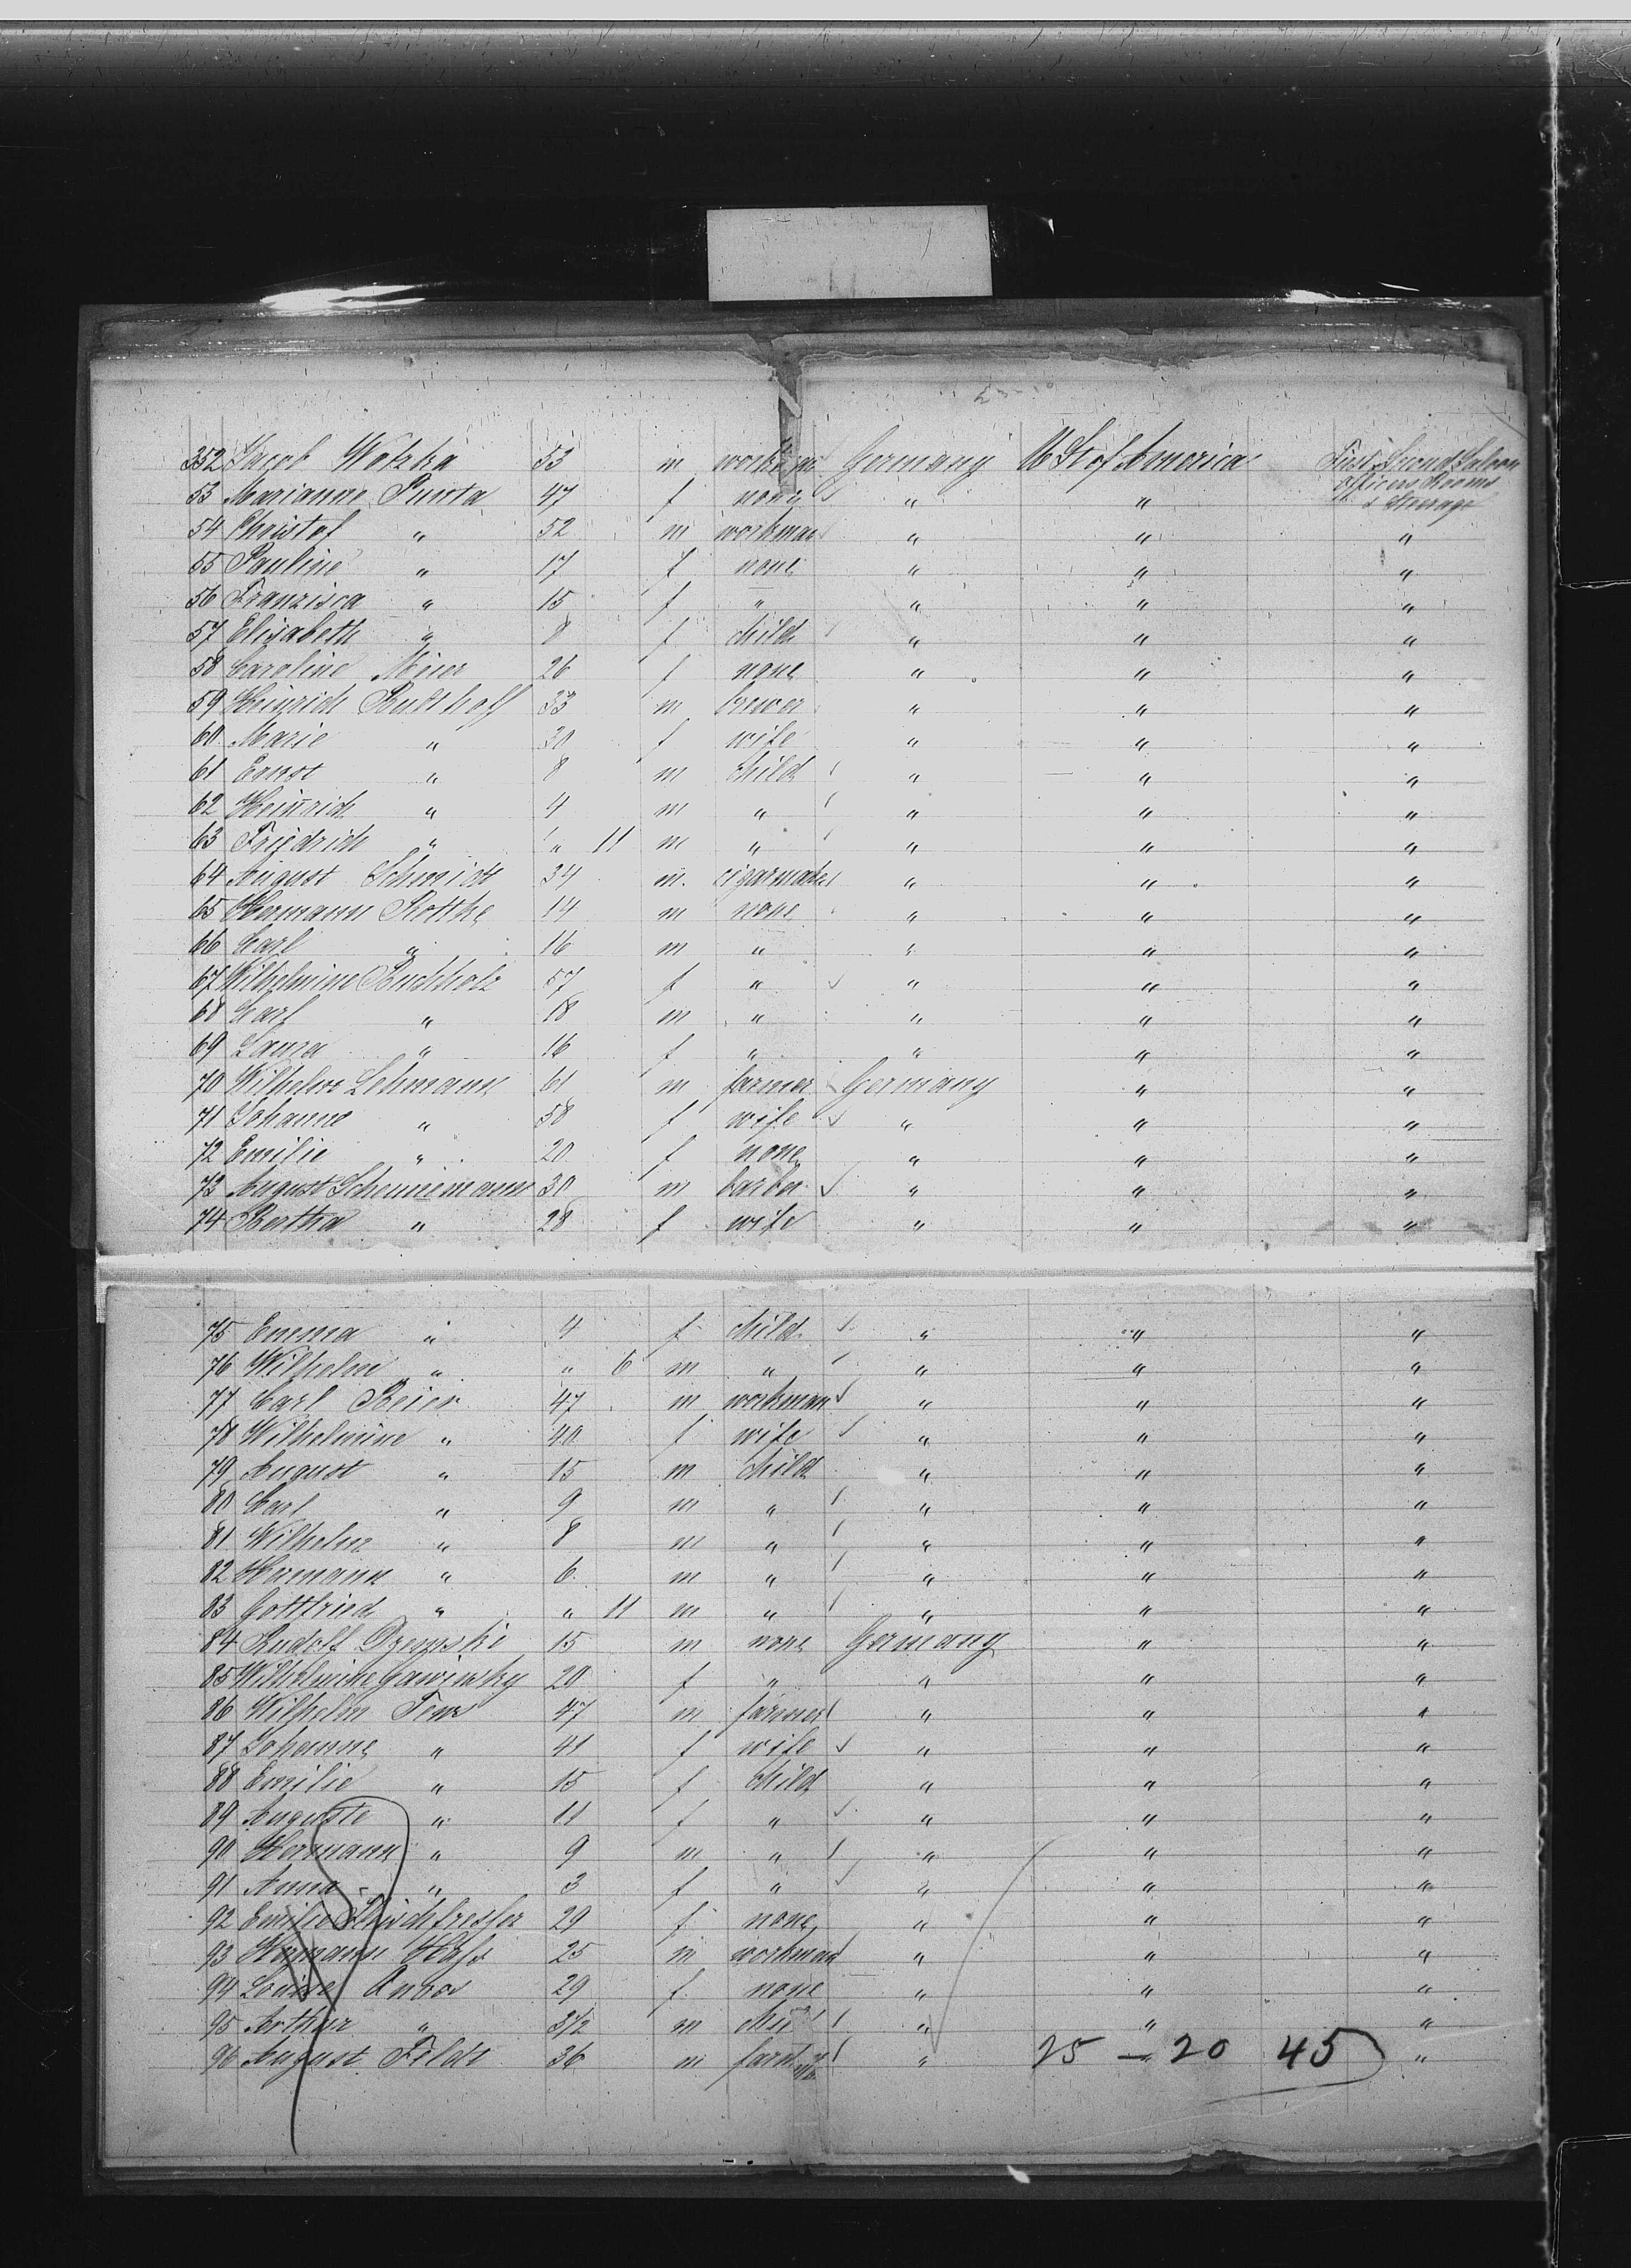 352 Jacob Watzka 53 m workman Germany U St of America First Second Saloon
officers Rooms
53 Marianne Punta 47 f none " " & Steerage
54 Christof " 52 m workman " " "
55 Pauline " 17 f none " " "
56 Franzisca " 15 f " " " "
57 Elisabeth " 8 f child " " "
58 Caroline Meier 26 f none " " "
59 Heinrich Rutthoff 33 m brewer " " "
60 Marie " 30 f wife " " "
61 Ernst " 8 m child " " "
62 Heinrich " 4 m " " " "
63 Friedrich " " 11 m " " " "
64 August Schmidt 34 m. cigarmaker " " "
65 Hermann Rottke 14 m none " " "
66 Carl " 16 m " " " "
67 Wilhelmine Buchholz 57 f " " " "
68 Carl " 18 m " " " "
69 Laura " 16 f " " " "
70 Wilhelm Lehmann 61 m farmer Germany " "
71 Johanne " 58 f wife " " "
72 Emilie " 20 f none " " "
73 August Scheunemann 30 m barber " " "
74 Bertha " 28 f wife " " "
75 Emma " 4 f child " " "
76 Wilhelm " " 6 m " " " "
77 Carl Beier 47 m workman " " "
78 Wilhelmine " 40 f wife " " "
79 August " 15 m child " " "
80 Carl " 9 m " " " "
81 Wilhelm " 8 m " " " "
82 Hermann " 6 m " " " "
83 Gottfried " " 11 m " " " "
84 Rudolf 15 m none Germany " "
85 Wilhelmine Gawinsky 20 f " " " "
86 Wilhelm 47 m farmer " " "
87 Johanne " 41 f wife " " "
88 Emilie " 15 f child " " "
89 Auguste " 11 f " " " "
90 Hermann " 9 m " " " "
91 Anna " 3 f " " " "
92 Emilie 29 f none " " "
93 Hermann 25 m workman " " "
94 Louise 29 f none " " "
95 Arthur " 3 1/2 m " " "
96 August Feldt 36 m " 25 — 20 45 "